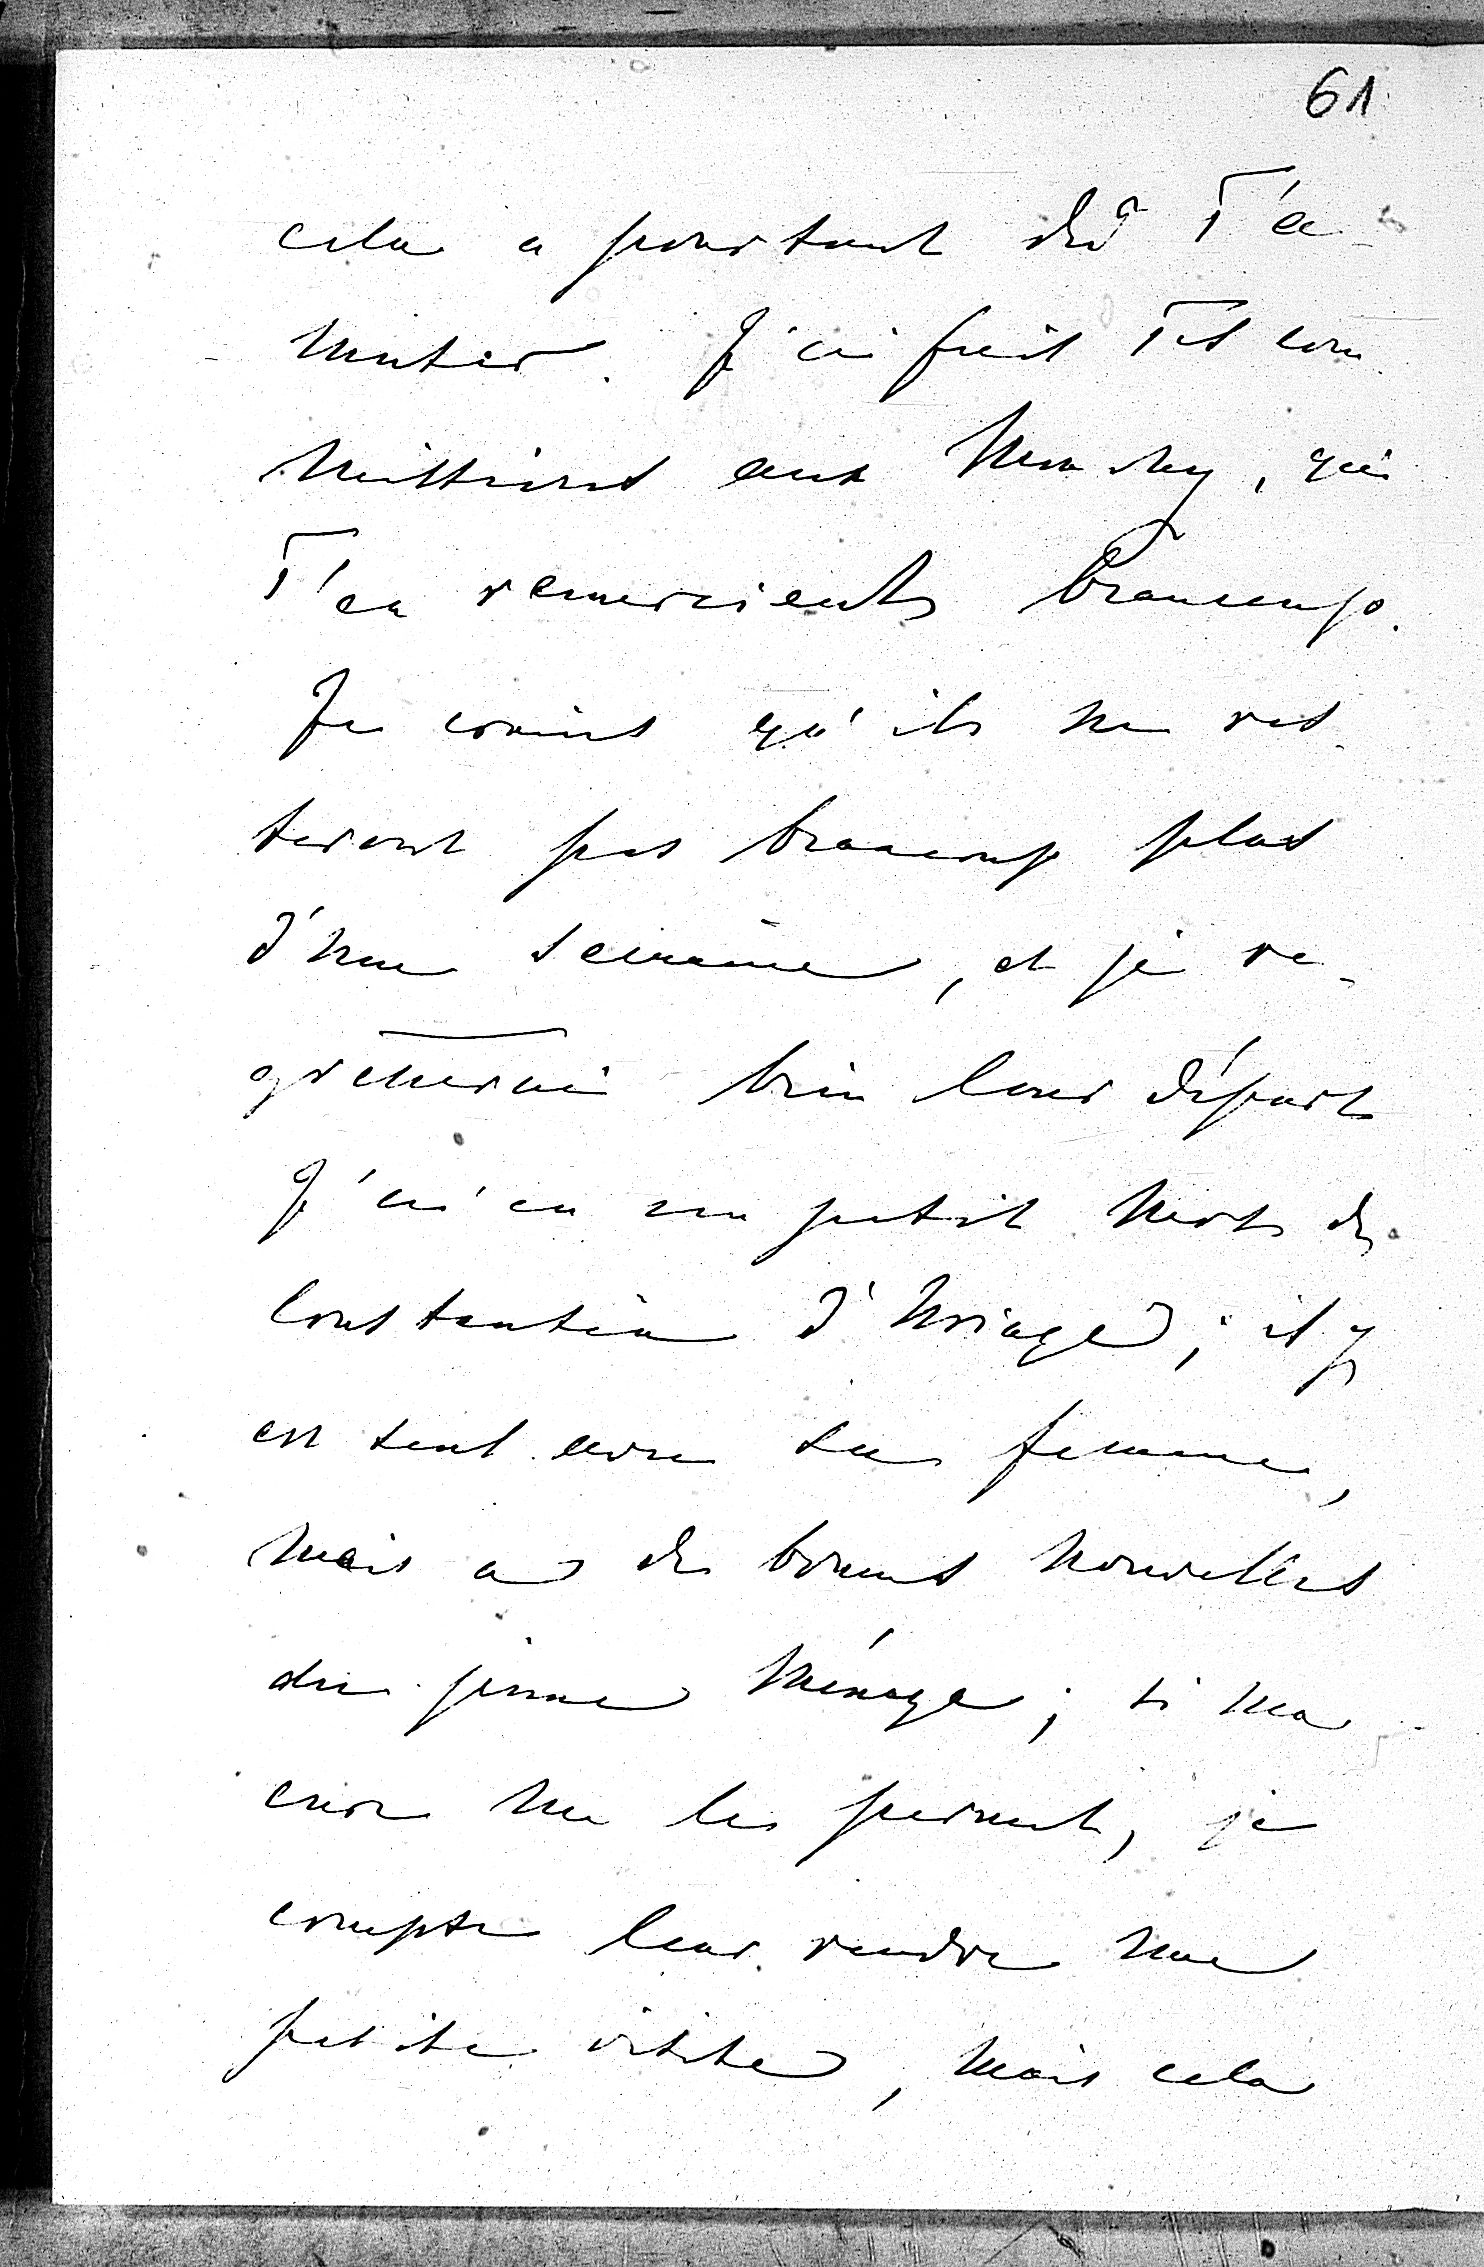 61
cela a pourtant dû t'a-
muser. J'ai fait tes com
missions aux Mouchy, qui
t'en remercient beaucoup.
Je crains qu'ils ne res
teront pas beaucoup plus
d'une semaine, et je re-
gretterai bien leur départ
J'ai eu un petit mot de
Constantin d'Uriage ; il y
est seul avec sa femme,
mais a de bonnes nouvelles
du jeune ménage ; si ma
cure me le permet, je
compte leur rendre une
petite visite, mais cela